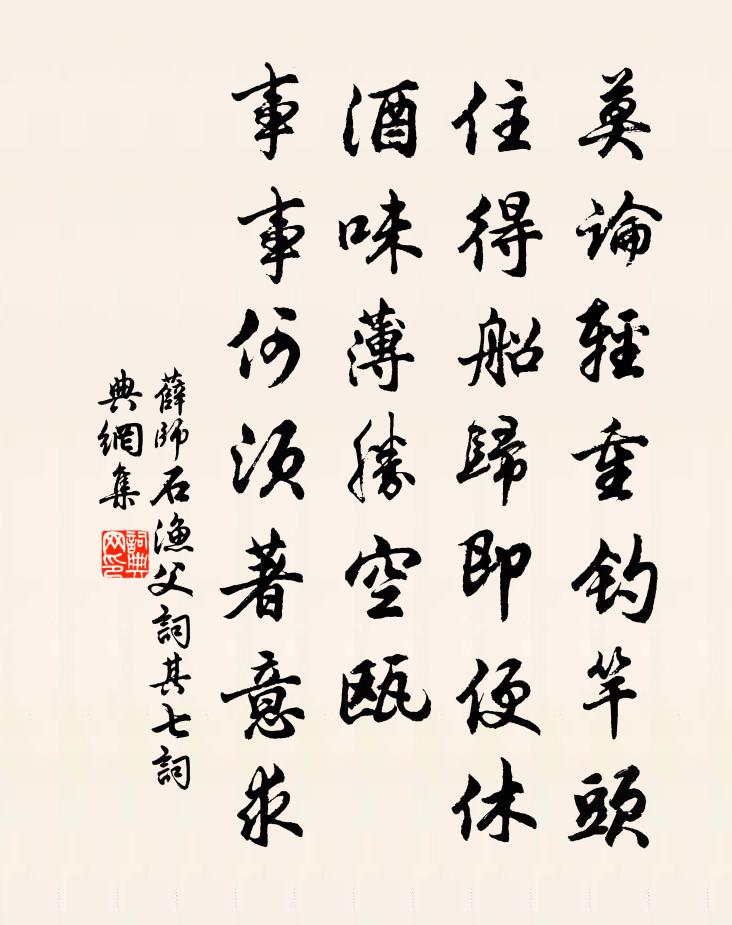 莫論輕重釣竿頭
住得船歸即便休
酒味薄勝空甌
事事何須著意求
薛師石漁父詞其七詞
典網集
詞典網印